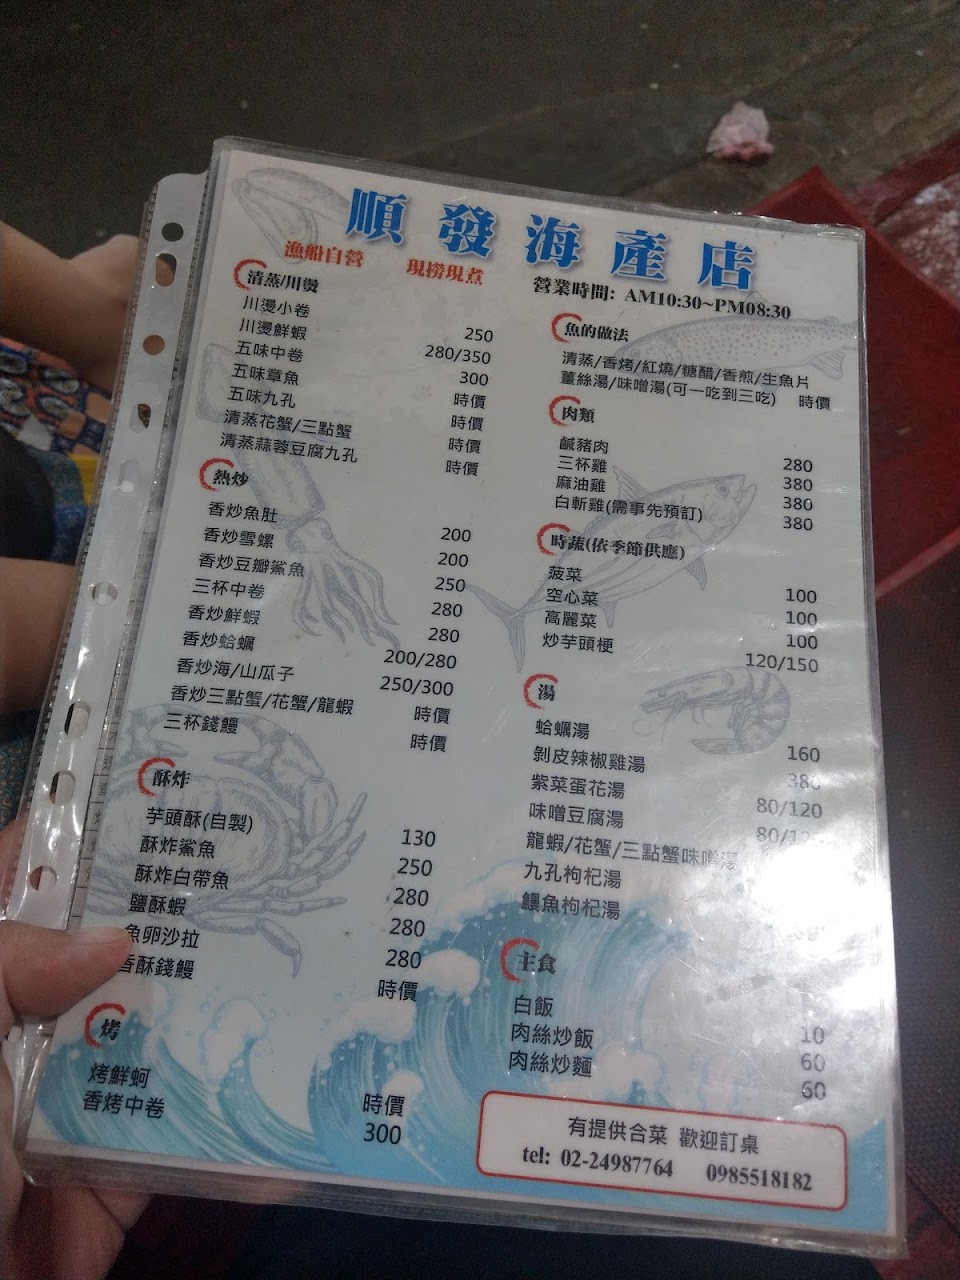 順發海產店
漁船自營 現撈現煮
營業時間: AM10:30~PM08:30
清蒸/川燙
川燙小卷 250
川燙鮮蝦 280/350
五味中卷 300
五味章魚 時價
五味九孔 時價
清蒸花蟹/三點蟹 時價
清蒸蒜蓉豆腐九孔 時價
熱炒
香炒魚肚 200
香炒雪螺 200
香炒豆瓣鯊魚 250
三杯中卷 280
香炒鮮蝦 280
香炒蛤蠣 200/280
香炒海/山瓜子 250/300
香炒三點蟹/花蟹/龍蝦 時價
三杯錢鰻 時價
酥炸
芋頭酥(自製) 130
酥炸鯊魚 250
酥炸白帶魚 280
鹽酥蝦 280
魚卵沙拉 280
香酥錢鰻 時價
烤
烤鮮蚵 時價
香烤中卷 300
魚的做法
清蒸/香烤/紅燒/糖醋/香煎/生魚片
薑絲湯/味噌湯(可一吃到三吃) 時價
肉類
鹹豬肉 280
三杯雞 380
麻油雞 380
白斬雞(需事先預訂) 380
時蔬(依季節供應)
菠菜 100
空心菜 100
高麗菜 100
炒芋頭梗 120/150
湯
蛤蠣湯 160
剝皮辣椒雞湯 380
紫菜蛋花湯 80/120
味噌豆腐湯
龍蝦/花蟹/三點蟹味噌湯
九孔枸杞湯
鰻魚枸杞湯
主食
白飯 10
肉絲炒飯 60
肉絲炒麵 60
有提供合菜 歡迎訂桌
tel: 02-24987764 0985518182